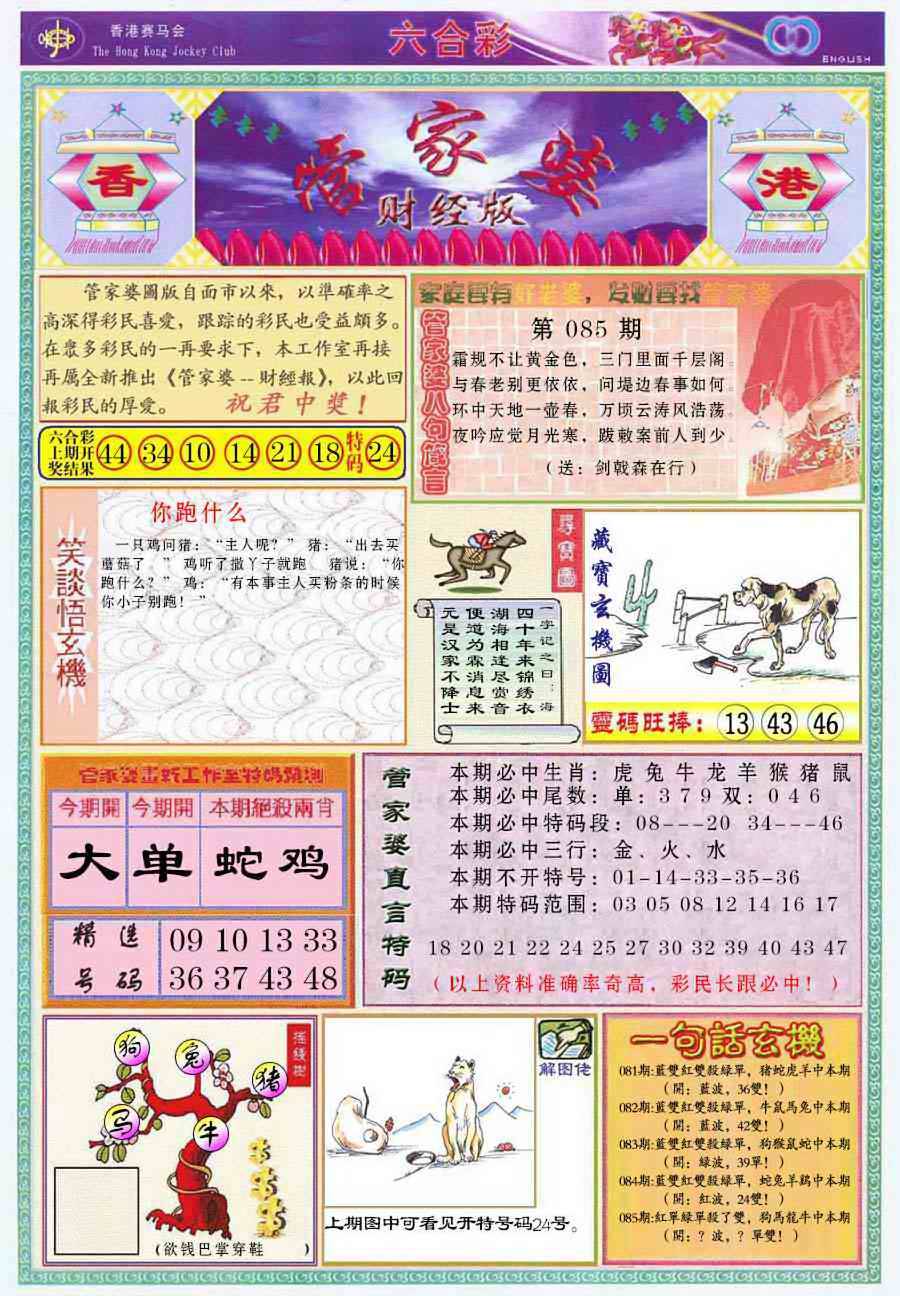 香港赛马会
The Hong Kong Jockey Club
六合彩
ENGLISH
香
港
管家婆
财经版
管家婆圖版自面市以來，以準確率之
高深得彩民喜愛，跟踪的彩民也受益頗多。
在眾多彩民的一再要求下，本工作室再接
再厲全新推出《管家婆--財經報》，以此回
報彩民的厚愛。 祝君中獎！
六合彩
上期开
奖结果
44 34 10 14 21 18 特码 24
家庭要有好老婆，发财要找管家婆
管家婆八句箴言
第 085 期
霜规不让黄金色，三门里面千层阁。
与春老别更依依，问堤边春事如何。
环中天地一壶春，万顷云涛风浩荡。
夜吟应觉月光寒，跋敕案前人到少。
（送：剑戟森在行）
笑談悟玄機
你跑什么
一只鸡问猪：“主人呢？” 猪：“出去买
蘑菇了。” 鸡听了撒丫子就跑。 猪说：“你
跑什么？” 鸡：“有本事主人买粉条的时候
你小子别跑！”
尋寶圖
一字记之曰：海
四十年来锦绣衣
湖海相逢尽赏音
便道为霖消息来
元是汉家不降士
藏寶玄機圖
靈碼旺捧： 13 43 46
管家婆畫版工作室特碼預測
今期開 今期開 本期絕殺兩肖
大 单 蛇鸡
精选号码
09 10 13 33
36 37 43 48
管家婆直言特码
本期必中生肖：虎 兔 牛 龙 羊 猴 猪 鼠
本期必中尾数：单：3 7 9 双：0 4 6
本期必中特码段：08---20 34---46
本期必中三行：金、火、水
本期不开特号：01-14-33-35-36
本期特码范围：03 05 08 12 14 16 17
18 20 21 22 24 25 27 30 32 39 40 43 47
（以上资料准确率奇高，彩民长跟必中！）
摇錢樹
狗
兔
猪
马
牛
（欲钱巴掌穿鞋 ）
解图佬
上期图中可看见开特号码24号。
一句話玄機
081期:藍雙紅雙殺綠單，猪蛇虎羊中本期
（開：藍波，36雙！）
082期:藍雙紅雙殺綠單，牛鼠馬兔中本期
（開：藍波，42雙！）
083期:藍雙紅雙殺綠單，狗猴鼠蛇中本期
（開：綠波，39單！）
084期:藍雙紅雙殺綠單，蛇兔羊鷄中本期
（開：紅波，24雙！）
085期:紅單綠單殺了雙，狗馬龍牛中本期
（開：？波，？單雙！）